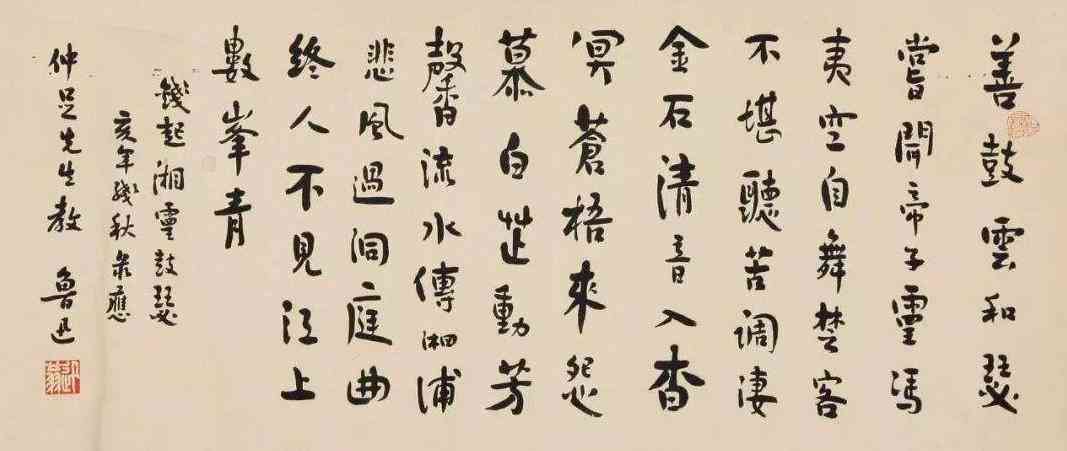 善鼓雲和瑟
嘗聞帝子靈馮
夷空自舞楚客
不堪聽苦调凄
金石清音入杳
冥蒼梧來怨
慕白芷動芳
馨流水傳湘浦
悲風過洞庭曲
終人不見江上
數峯青
錢起湘靈鼓瑟
亥年残秋錄應
仲足先生教
魯迅